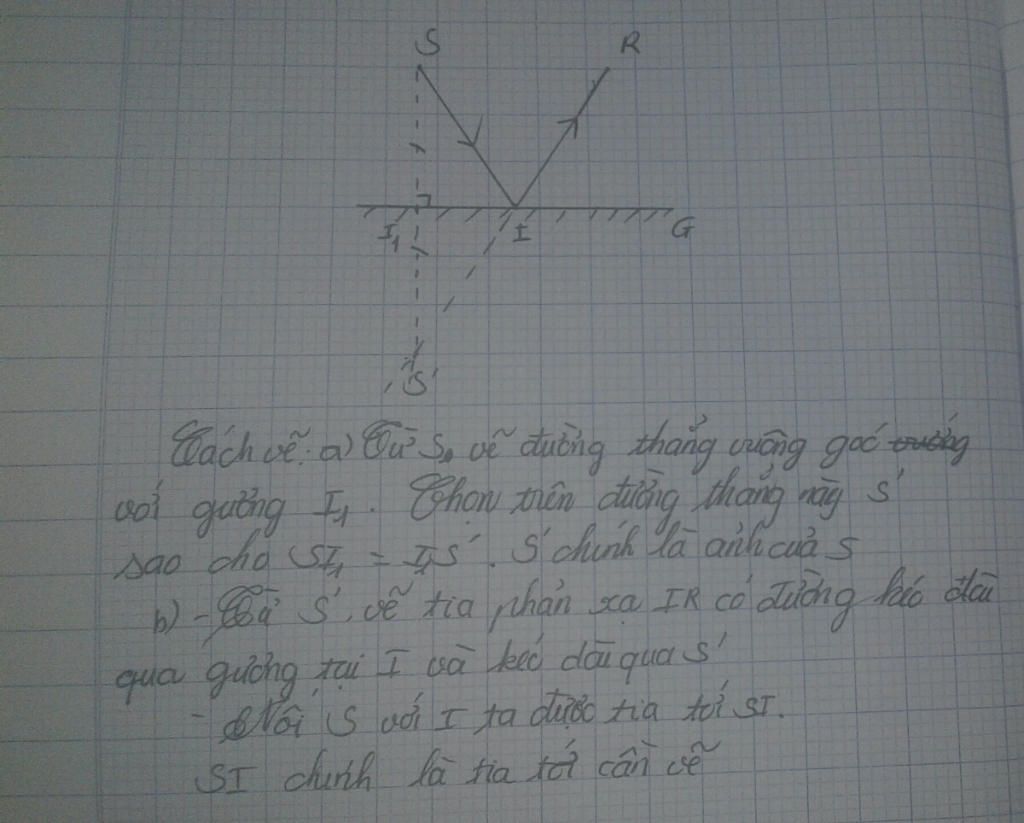 S R
I₁ I G
S'
Cách vẽ: a) Từ S. vẽ đường thẳng vuông góc
với gương I₁. Chọn trên đường thẳng này S'
sao cho SI₁ = I₁S'. S' chính là ảnh của S
b) - Từ S', vẽ tia phản xạ IR có đường kéo dài
qua gương tại I và kéo dài qua S'
- Nối S với I ta được tia tới SI.
SI chính là tia tới cần vẽ